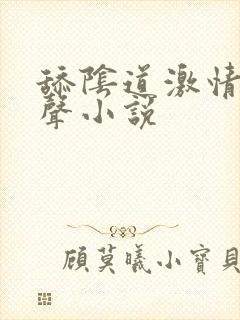 舔陰道激情
聲小説
顧莫曦小寶貝